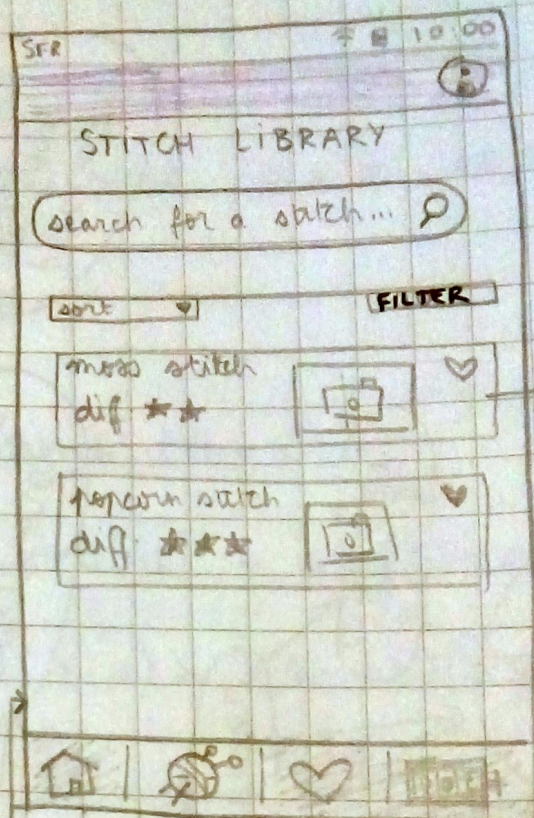 SFR 10:00
STITCH LIBRARY
search for a stitch...
sort FILTER
moss stitch
diff ★★
popcorn stitch
diff ★★★